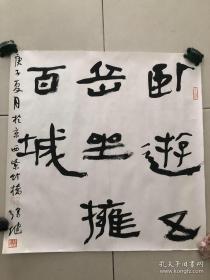 卧遊五
岳坐擁
百城
庚子夏月於京西紫竹橋